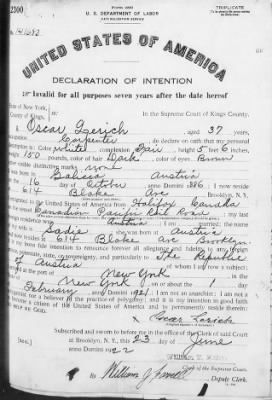 TRIPLICATE
U. S. DEPARTMENT OF LABOR
NATURALIZATION SERVICE
UNITED STATES OF AMERICA
DECLARATION OF INTENTION
Invalid for all purposes seven years after the date hereof
State of New York,
County of Kings,
In the Supreme Court of Kings County.
I, Oscar, aged 37 years,
occupation Carpenter, do declare on oath that my personal
description is: Color white, complexion Fair, height 5 feet 6 inches,
weight 150 pounds, color of hair Dark, color of eyes Brown
other visible distinctive marks none
I was born in Galicia Austria
on the 16 day of October, anno Domini; I now reside
at 614 Blake Ave, Brooklyn, N.Y.
I emigrated to the United States of America from Halifox Canada
on the vessel Canadian Pacific Rail Road; my last
foreign residence was Austria; I am married;
the name of my wife is Sadie; she was born at Austria
and now resides at 614 Blake Ave Brooklyn
It is my bona fide intention to renounce forever all allegiance and fidelity to any foreign
prince, potentate, state, or sovereignty, and particularly to The Republic
of Austria
I arrived at the port of New York
in the State of New York, on or about the 1 day
of February, anno Domini 1921; I am not an anarchist; I am not a
polygamist nor a believer in the practice of polygamy; and it is my intention in good faith
to become a citizen of the United States of America and to permanently reside therein:
SO HELP ME GOD.
Subscribed and sworn to before me in the office of the Clerk of said Court
at Brooklyn, N. Y., this 23 day of June
anno Domini 1922
Clerk of the Supreme Court.
By, Deputy Clerk.